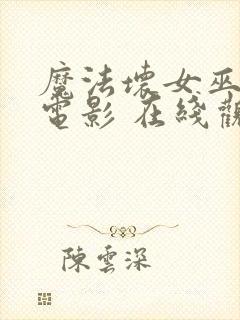 魔法壞女巫
電影 在綫觀
陳雲深